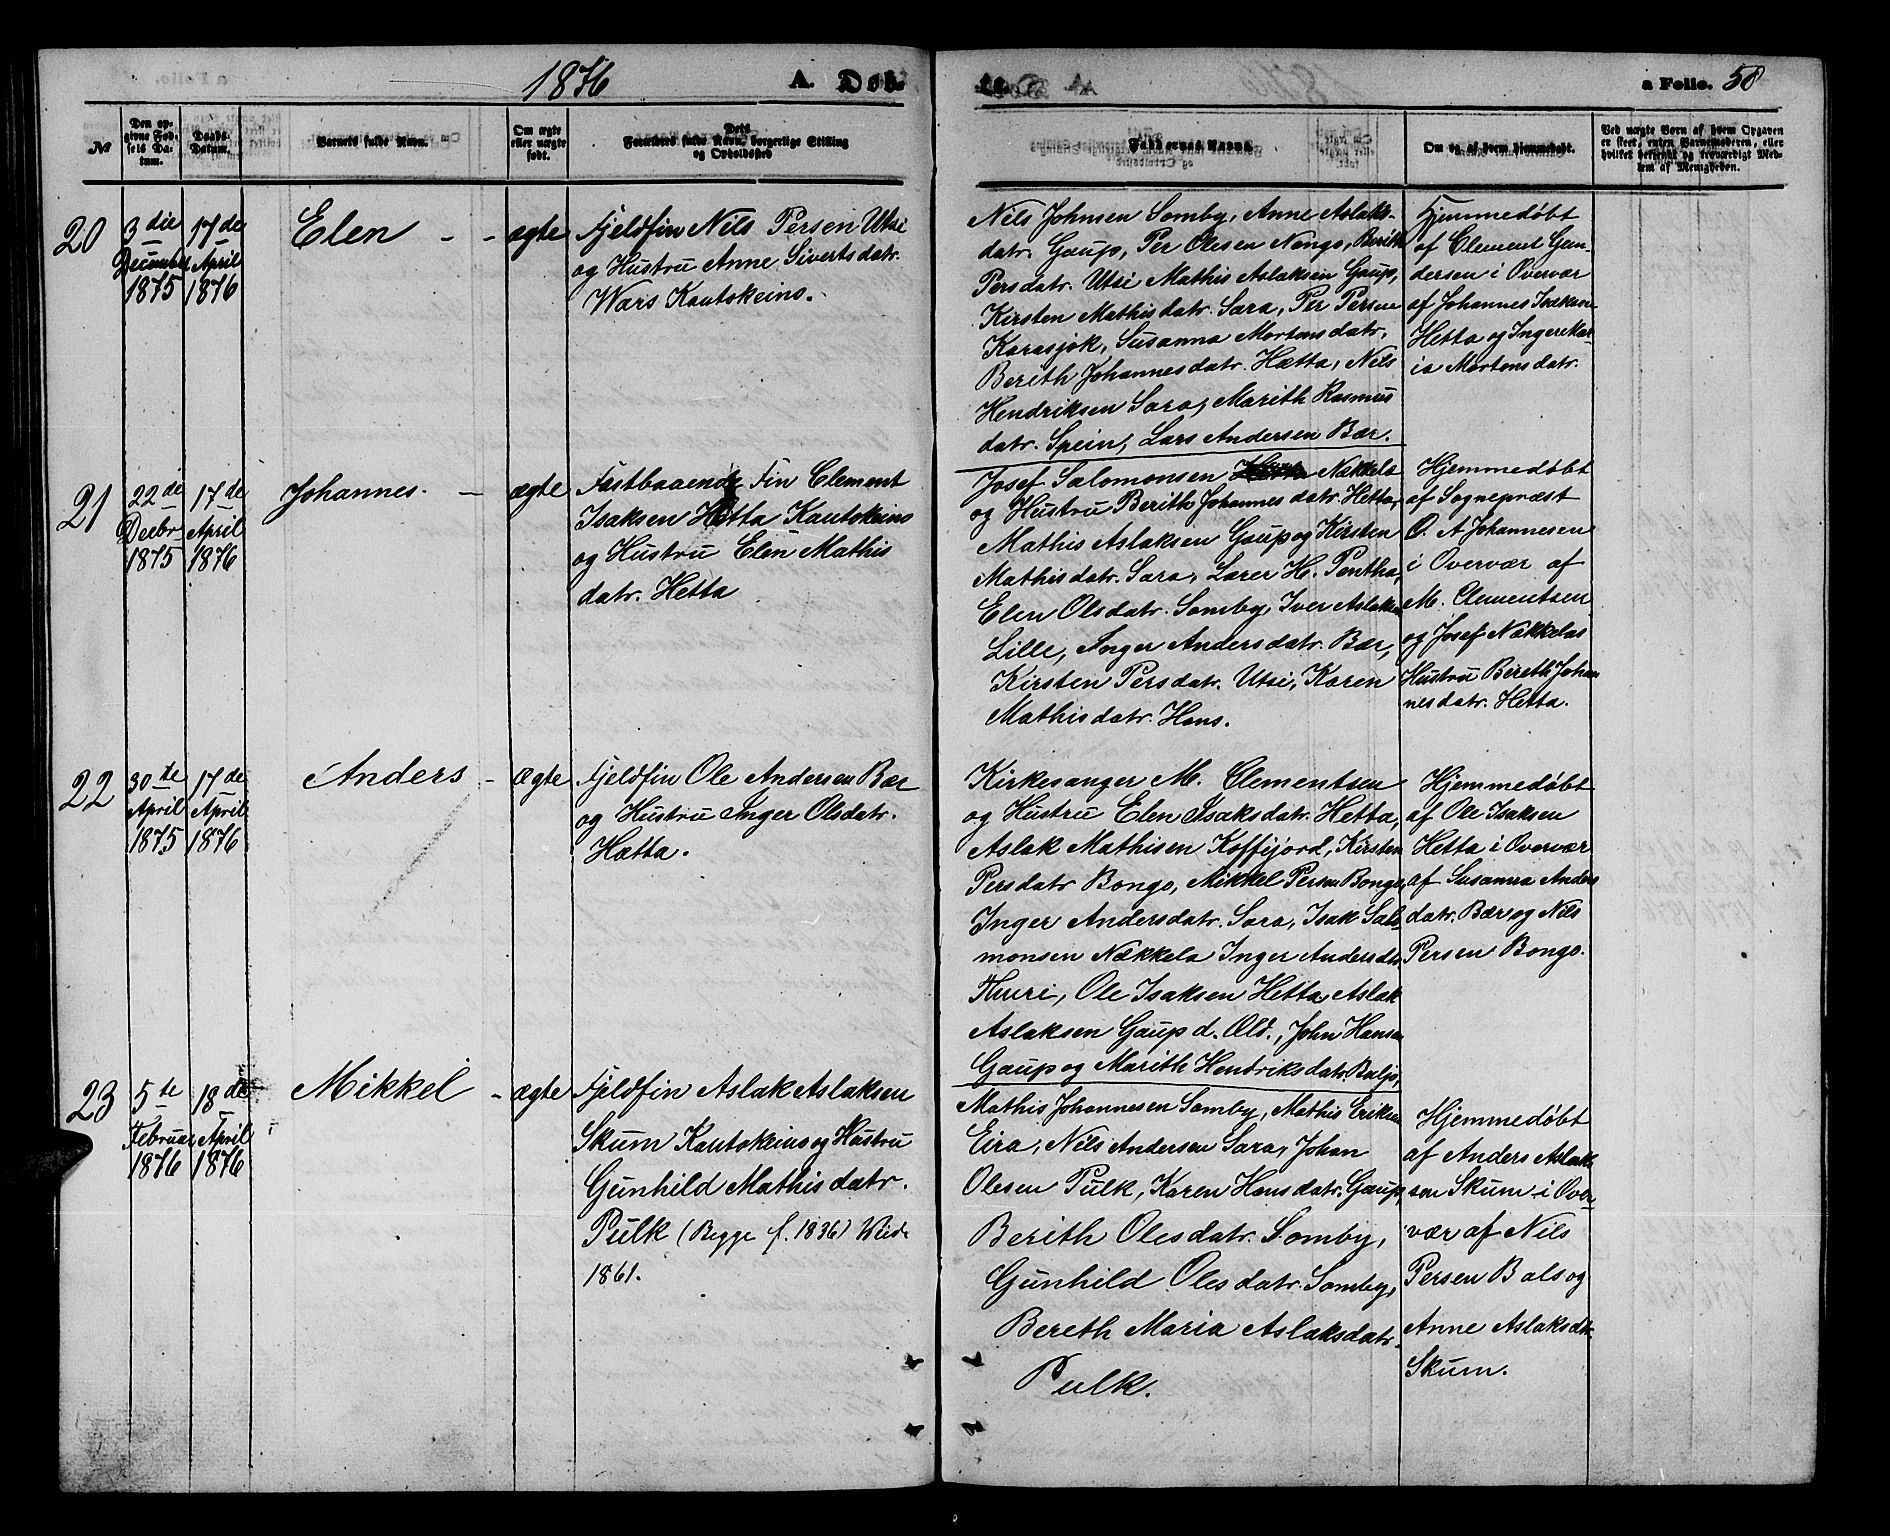 1876
A. Døb.
a Folio. 58
№
Den opgivne Fødsels Datum.
Daabs-Datum.
Barnets fulde Navn.
Om ægte eller uægte født.
Dets Forældres fulde Navn, borgerlige Stilling og Opholdssted
Faddernes Navne
Om og af hvem hjemmedøbt.
Ved uægte Børn af hvem Opgaven er skeet, enten Barnemoderen, eller hvilket bekjendt og troværdigt Medlem af Menigheden.
20
3 die
December
1875
17 de
April
1876
Elen
ægte
Fjeldfin Nils Persen Utsi
og Hustru Anne Sivertsdatr.
Wars Kautokeino.
Nils Johnsen Somby, Anne Aslaks-
datr. Gaup, Per Olesen Nango, Berith
Persdatr. Utsi Mathis Aslaksen Gaup,
Kirsten Mathisdatr. Sara, Per Persen
Karasjok, Susanna Mortensdatr,
Berith Johannesdatr. Hætta, Nils
Hendriksen Sara, Marith Rasmus
datr. Spein, Lars Andersen Bær.
Hjemmedøbt
af Clement Gun-
dersen i Overvær
af Johannes Isaksen
Hetta og Inger Mar-
ia Mortensdatr.
21
22 de
Decbr
1875
17 de
April
1876
Johannes.
ægte
Fastboaende Fin Clement
Isaksen Hetta Kautokeino
og Hustru Elen Mathis
datr. Hetta
Josef Salomonsen Nækkela
og Hustru Berith Johannesdatr. Hetta,
Mathis Aslaksen Gaup og Kirsten
Mathisdatr. Sara, Lærer H. Pentha,
Elen Olsdatr. Somby, Iver Aslaksen
Lille, Inger Andersdatr. Bær,
Kirsten Persdatr. Utsi, Karen
Mathisdatr. Hans.
Hjemmedøbt
af Sognepræst
O. A Johannesen
i Overvær af
M. Clementsen
og Josef Nækkelas
Hustru Bereth Johan
nesdatr. Hetta.
22
30 te
April
1875
17 de
April
1876
Anders
Ægte
Fjeldfin Ole Andersen Bær
og Hustru Inger Olsdatr.
Hætta.
Kirkesanger M. Clementsen
og Hustru Elen Isaksdatr. Hetta,
Aslak Mathisen Koffijord, Kirsten
Persdatr Bongo, Mikkel Persen Bongo,
Inger Andersdatr. Sara, Isak Salo-
monsen Nækkela Inger Andersdr.
Thuri, Ole Isaksen Hetta, Aslak
Aslaksen Gaup d. Æld., John Hansen
Gaup og Marith Hendriksdatr. Baljo,
Hjemmedøbt
af Ole Isaksen
Hetta i Overvær
af Susanna Anders
datr. Bær og Nils
Persen Bongo.
23
5 te
Februar
1876
18 de
April
1876
Mikkel
ægte
Fjeldfin Aslak Aslaksen
Skum Kautokeino og Hustru
Gunhild Mathisdatr.
Pulk (Begge f. 1836) Viede
1861.
Mathis Johannesen Somby, Mathis Eriksen
Eira, Nils Andersen Sara, Johan
Olesen Pulk, Karen Hansdatr. Gaup,
Berith Olesdatr. Somby,
Gunhild Olesdatr. Somby,
Bereth Maria Aslaksdatr.
Pulk.
Hjemmedøbt
af Anders Aslak
sen Skum i Over
vær af Nils
Persen Bals og
Anne Aslaksdtr.
Skum.